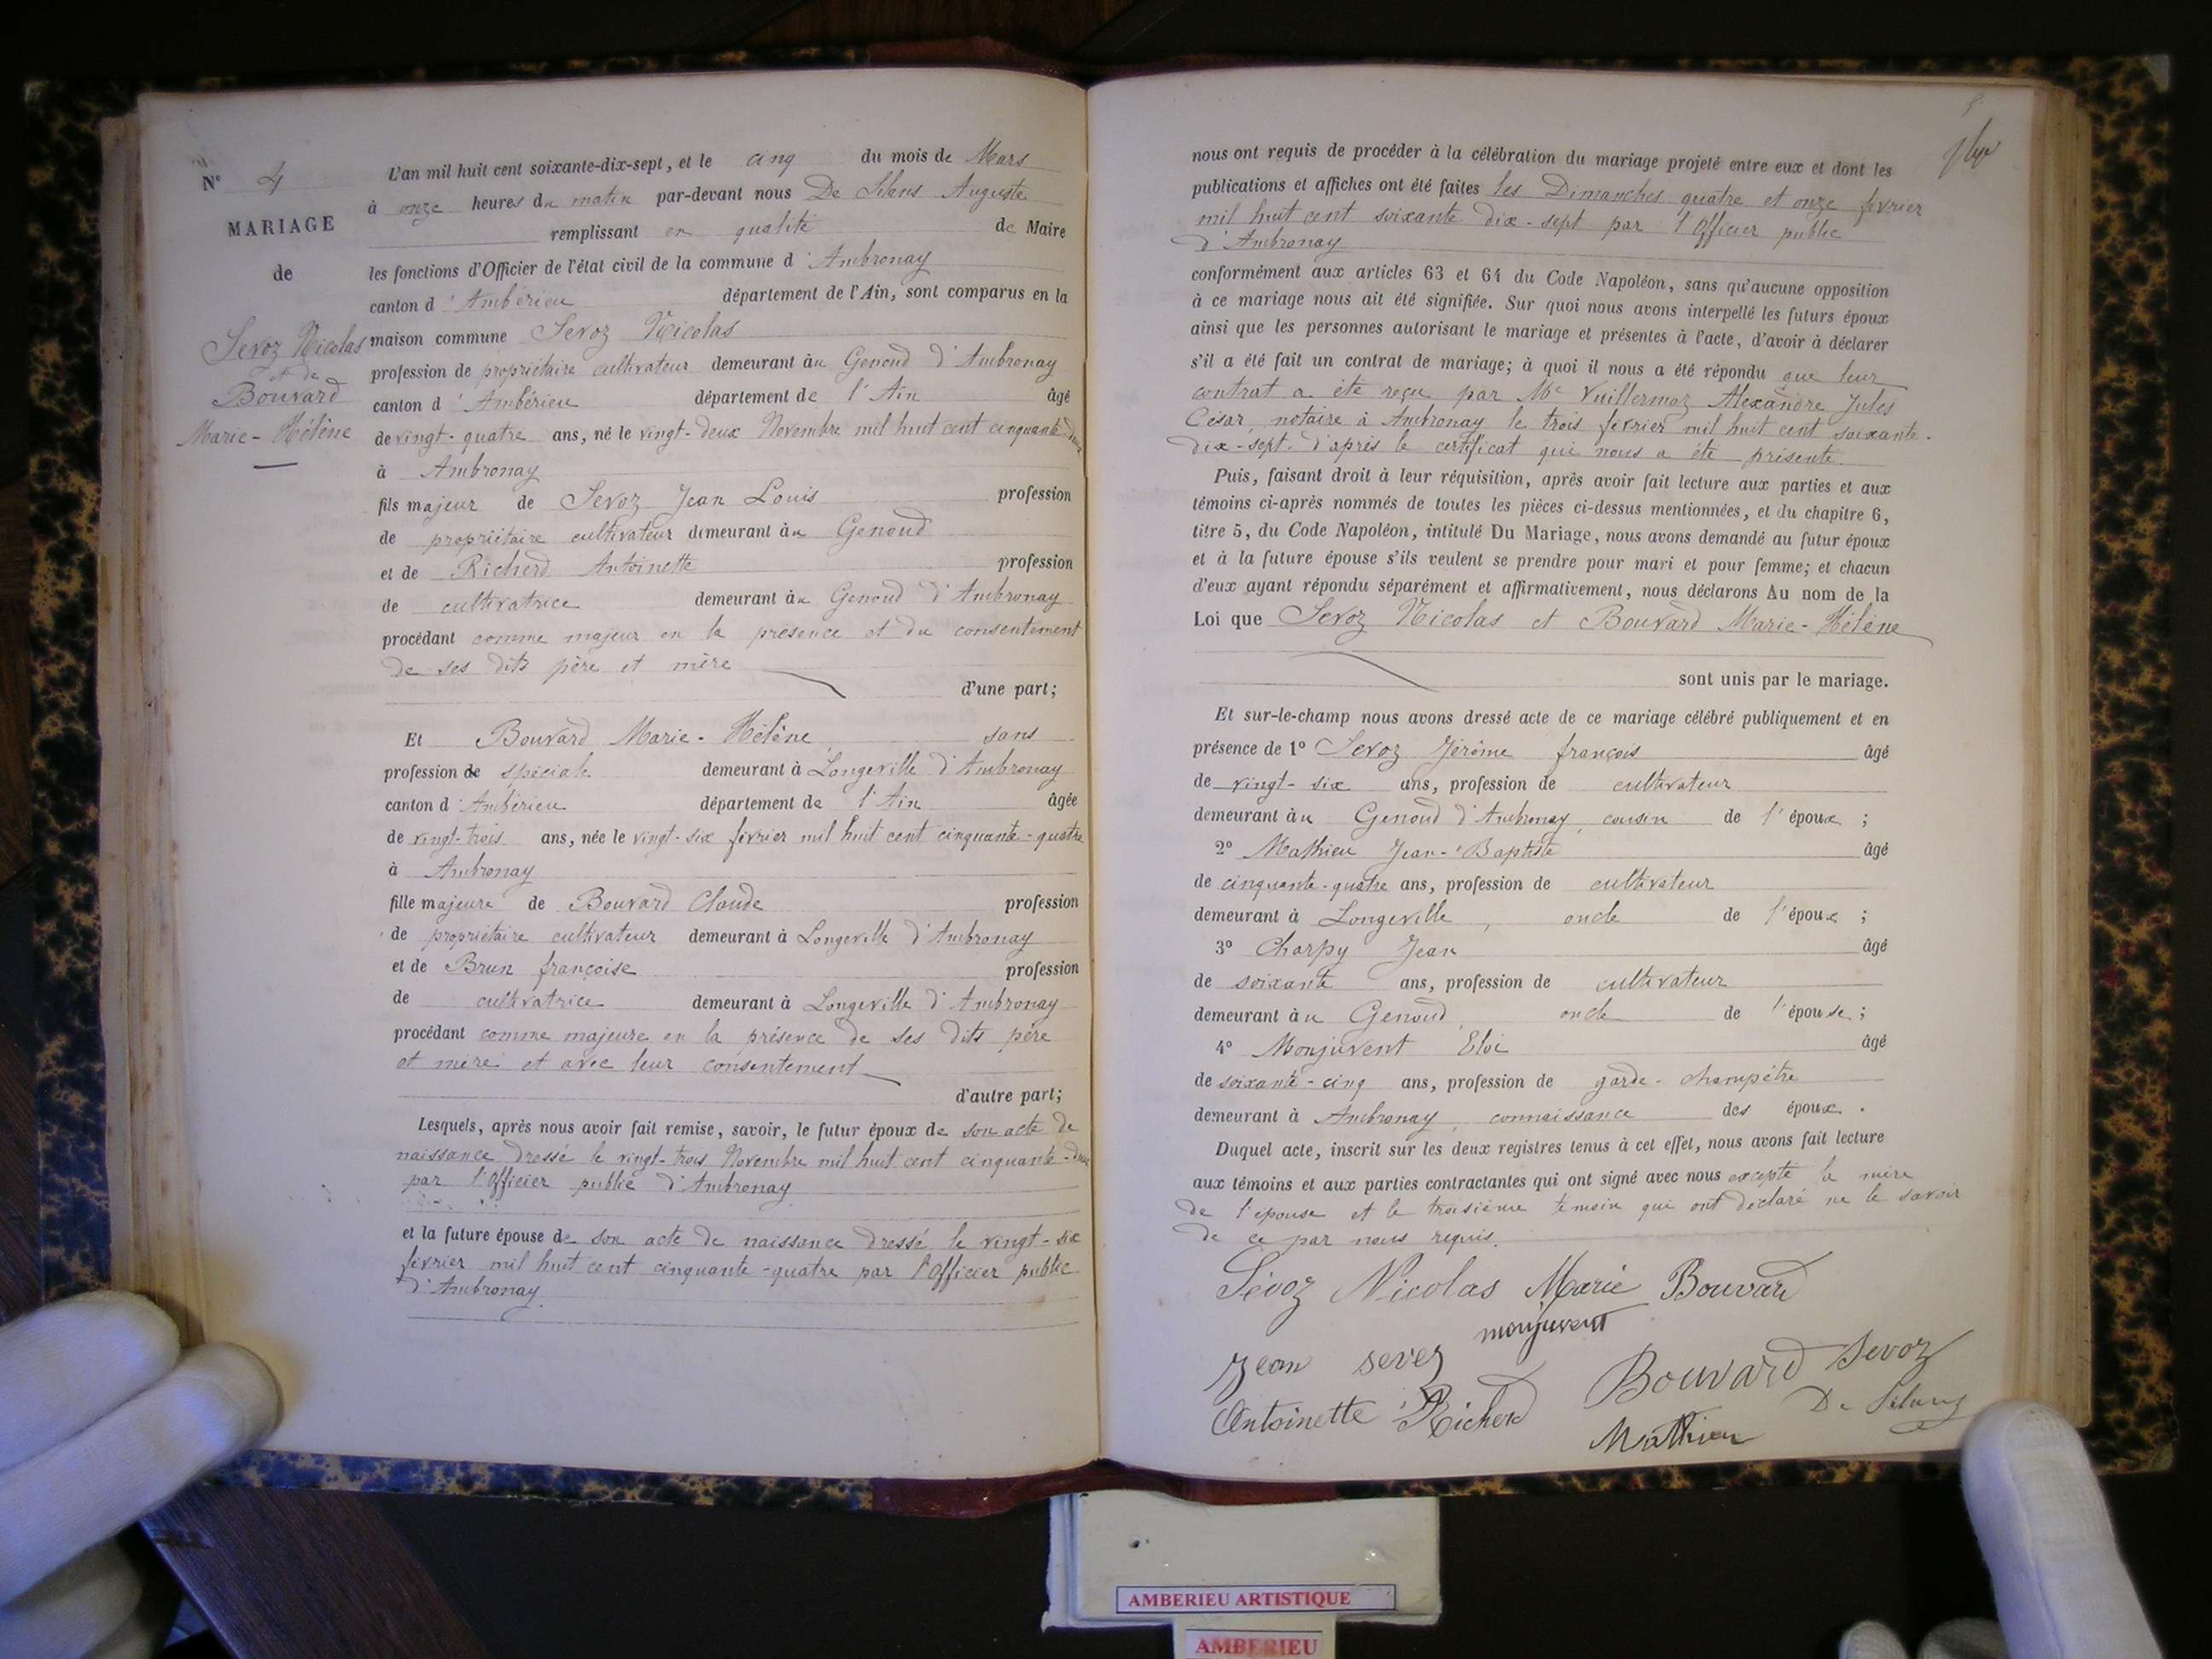 N° 4
MARIAGE
de
Sevoz Nicolas
et de
Bouvard
Marie-Hélène
L'an mil huit cent soixante-dix-sept, et le cinq du mois de Mars
à onze heures du matin par-devant nous De Silans Auguste
remplissant en qualité de Maire
les fonctions d'Officier de l'état civil de la commune d'Ambronay
canton d'Ambérieu département de l'Ain, sont comparus en la
maison commune Sevoz Nicolas
profession de propriétaire cultivateur demeurant au Genoud d'Ambronay
canton d'Ambérieu département de l'Ain âgé
de vingt-quatre ans, né le vingt-deux Novembre mil huit cent cinquante-deux
à Ambronay
fils majeur de Sevoz Jean Louis profession
de propriétaire cultivateur demeurant au Genoud
et de Richerd Antoinette profession
de cultivatrice demeurant au Genoud d'Ambronay
procédant comme majeur en la présence et du consentement
de ses dits père et mère
d'une part;
Et Bouvard Marie-Hélène sans
profession de spéciale demeurant à Longeville d'Ambronay
canton d'Ambérieu département de l'Ain âgée
de vingt-trois ans, née le vingt-six février mil huit cent cinquante-quatre
à Ambronay
fille majeure de Bouvard Claude profession
de propriétaire cultivateur demeurant à Longeville d'Ambronay
et de Brun françoise profession
de cultivatrice demeurant à Longeville d'Ambronay
procédant comme majeure en la présence de ses dits père
et mère et avec leur consentement
d'autre part;
Lesquels, après nous avoir fait remise, savoir, le futur époux de son acte de
naissance dressé le vingt-trois Novembre mil huit cent cinquante-deux
par l'Officier public d'Ambronay
et la future épouse de son acte de naissance dressé le vingt-six
février mil huit cent cinquante-quatre par l'Officier public
d'Ambronay.
nous ont requis de procéder à la célébration du mariage projeté entre eux et dont les
publications et affiches ont été faites les Dimanches quatre et onze février
mil huit cent soixante dix-sept par l'Officier public
d'Ambronay
conformément aux articles 63 et 64 du Code Napoléon, sans qu'aucune opposition
à ce mariage nous ait été signifiée. Sur quoi nous avons interpellé les futurs époux
ainsi que les personnes autorisant le mariage et présentes à l'acte, d'avoir à déclarer
s'il a été fait un contrat de mariage; à quoi il nous a été répondu que leur
contrat a été reçu par Me Vuillermoz Alexandre Jules
César, notaire à Ambronay le trois février mil huit cent soixante-
dix-sept. d'après le certificat qui nous a été présenté.
Puis, faisant droit à leur réquisition, après avoir fait lecture aux parties et aux
témoins ci-après nommés de toutes les pièces ci-dessus mentionnées, et du chapitre 6,
titre 5, du Code Napoléon, intitulé Du Mariage, nous avons demandé au futur époux
et à la future épouse s'ils veulent se prendre pour mari et pour femme; et chacun
d'eux ayant répondu séparément et affirmativement, nous déclarons Au nom de la
Loi que Sevoz Nicolas et Bouvard Marie-Hélène
sont unis par le mariage.
Et sur-le-champ nous avons dressé acte de ce mariage célébré publiquement et en
présence de 1° Sevoz Jérôme françois âgé
de vingt-six ans, profession de cultivateur
demeurant au Genoud d'Ambronay, cousin de l'époux;
2° Mathieu Jean-Baptiste âgé
de cinquante-quatre ans, profession de cultivateur
demeurant à Longeville, oncle de l'époux;
3° Charpy Jean âgé
de soixante ans, profession de cultivateur
demeurant au Genoud, oncle de l'épouse;
4° Monjuvent Eloi âgé
de soixante-cinq ans, profession de garde-champêtre
demeurant à Ambronay, connaissance des époux.
Duquel acte, inscrit sur les deux registres tenus à cet effet, nous avons fait lecture
aux témoins et aux parties contractantes qui ont signé avec nous excepté la mère
de l'épouse et le troisième témoin qui ont déclaré ne le savoir
de ce par nous requis.
Sévoz Nicolas Marie Bouvard
monjuvent
Jean sevoz Bouvard Sevoz
Antoinette Richerd De Silans
Mathieu
AMBERIEU ARTISTIQUE
AMBERIEU